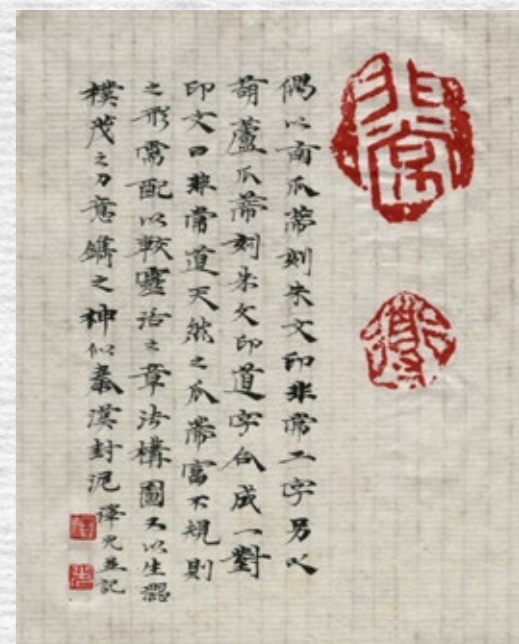 非常
道
偶以南瓜蒂刻朱文印非常二字另以
葫蘆爪蒂刻朱文印道字合成一對
印文曰非常道天然之爪蒂富不規則
之形需配以較靈活之章法構圖又以生澀
樸茂之刀意鐫之神似秦漢封泥
澤光並記